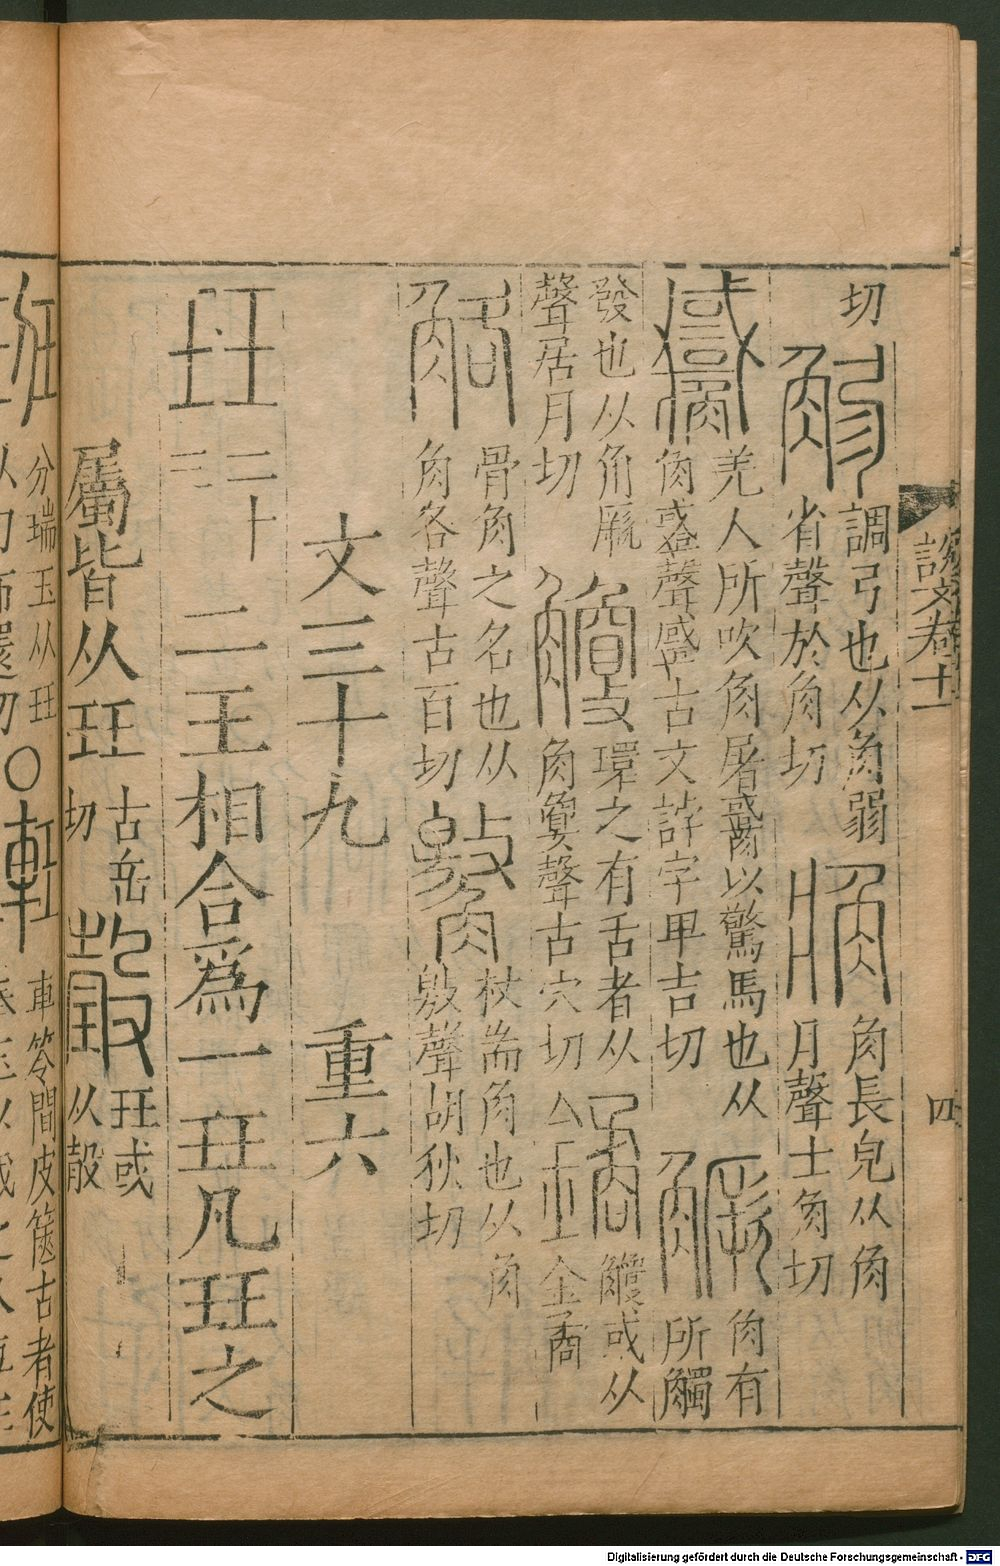 說文卷十一 四
切
調弓也从角弱
省聲於角切
角長皃从角
爿聲士角切
羌人所吹角屠觱以驚馬也从
聲 古文誖字卑吉切
角有
所觸
發也从角厥
聲居月切
觼
環之有舌者从
角敻聲古穴切
鐍
觼或从
金矞
觡
骨角之名也从
角各聲古百切
杖耑角也从角
敫聲胡狄切
文三十九 重六
玨
二十
三
二王相合爲一玨凡玨之
屬皆从玨
古岳
切
瑴
玨或
从㱿
班
分瑞玉从玨
从刀布還切
〇
車笭間皮篋古者使